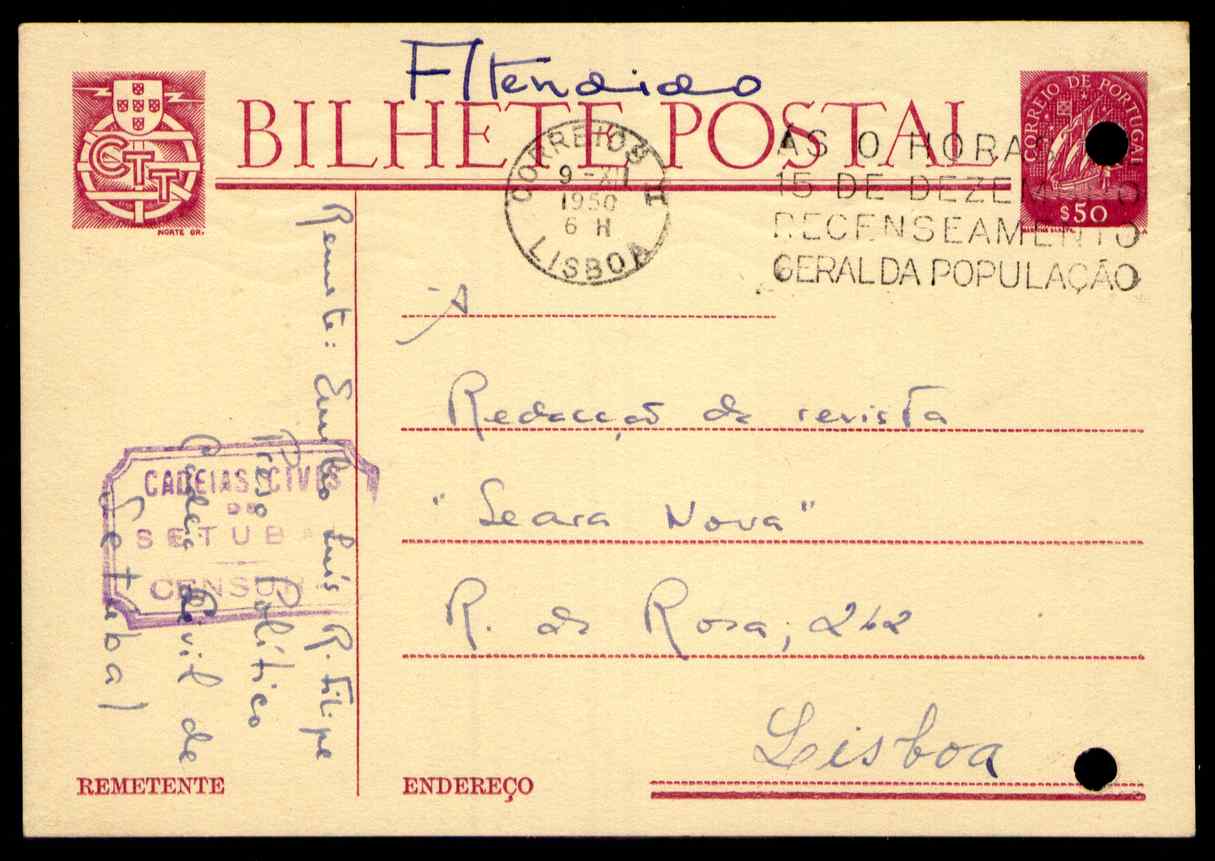 Attendido
CTT
NORTE GR.
BILHETE POSTAL
CORREIO DE PORTUGAL
$50
CORREIOS
9-XII
1950
6 H
LISBOA
ÀS 0 HORAS
15 DE DEZEMBRO
RECENSEAMENTO
GERAL DA POPULAÇÃO
À
Redacção da revista
"Seara Nova"
R. da Rosa, 242
Lisboa
Luís R. Filipe
Preso Político
Cadeia Civil de
Setubal
CADEIAS CIVIS
DE
SETUBAL
CENSURA
REMETENTE
ENDEREÇO